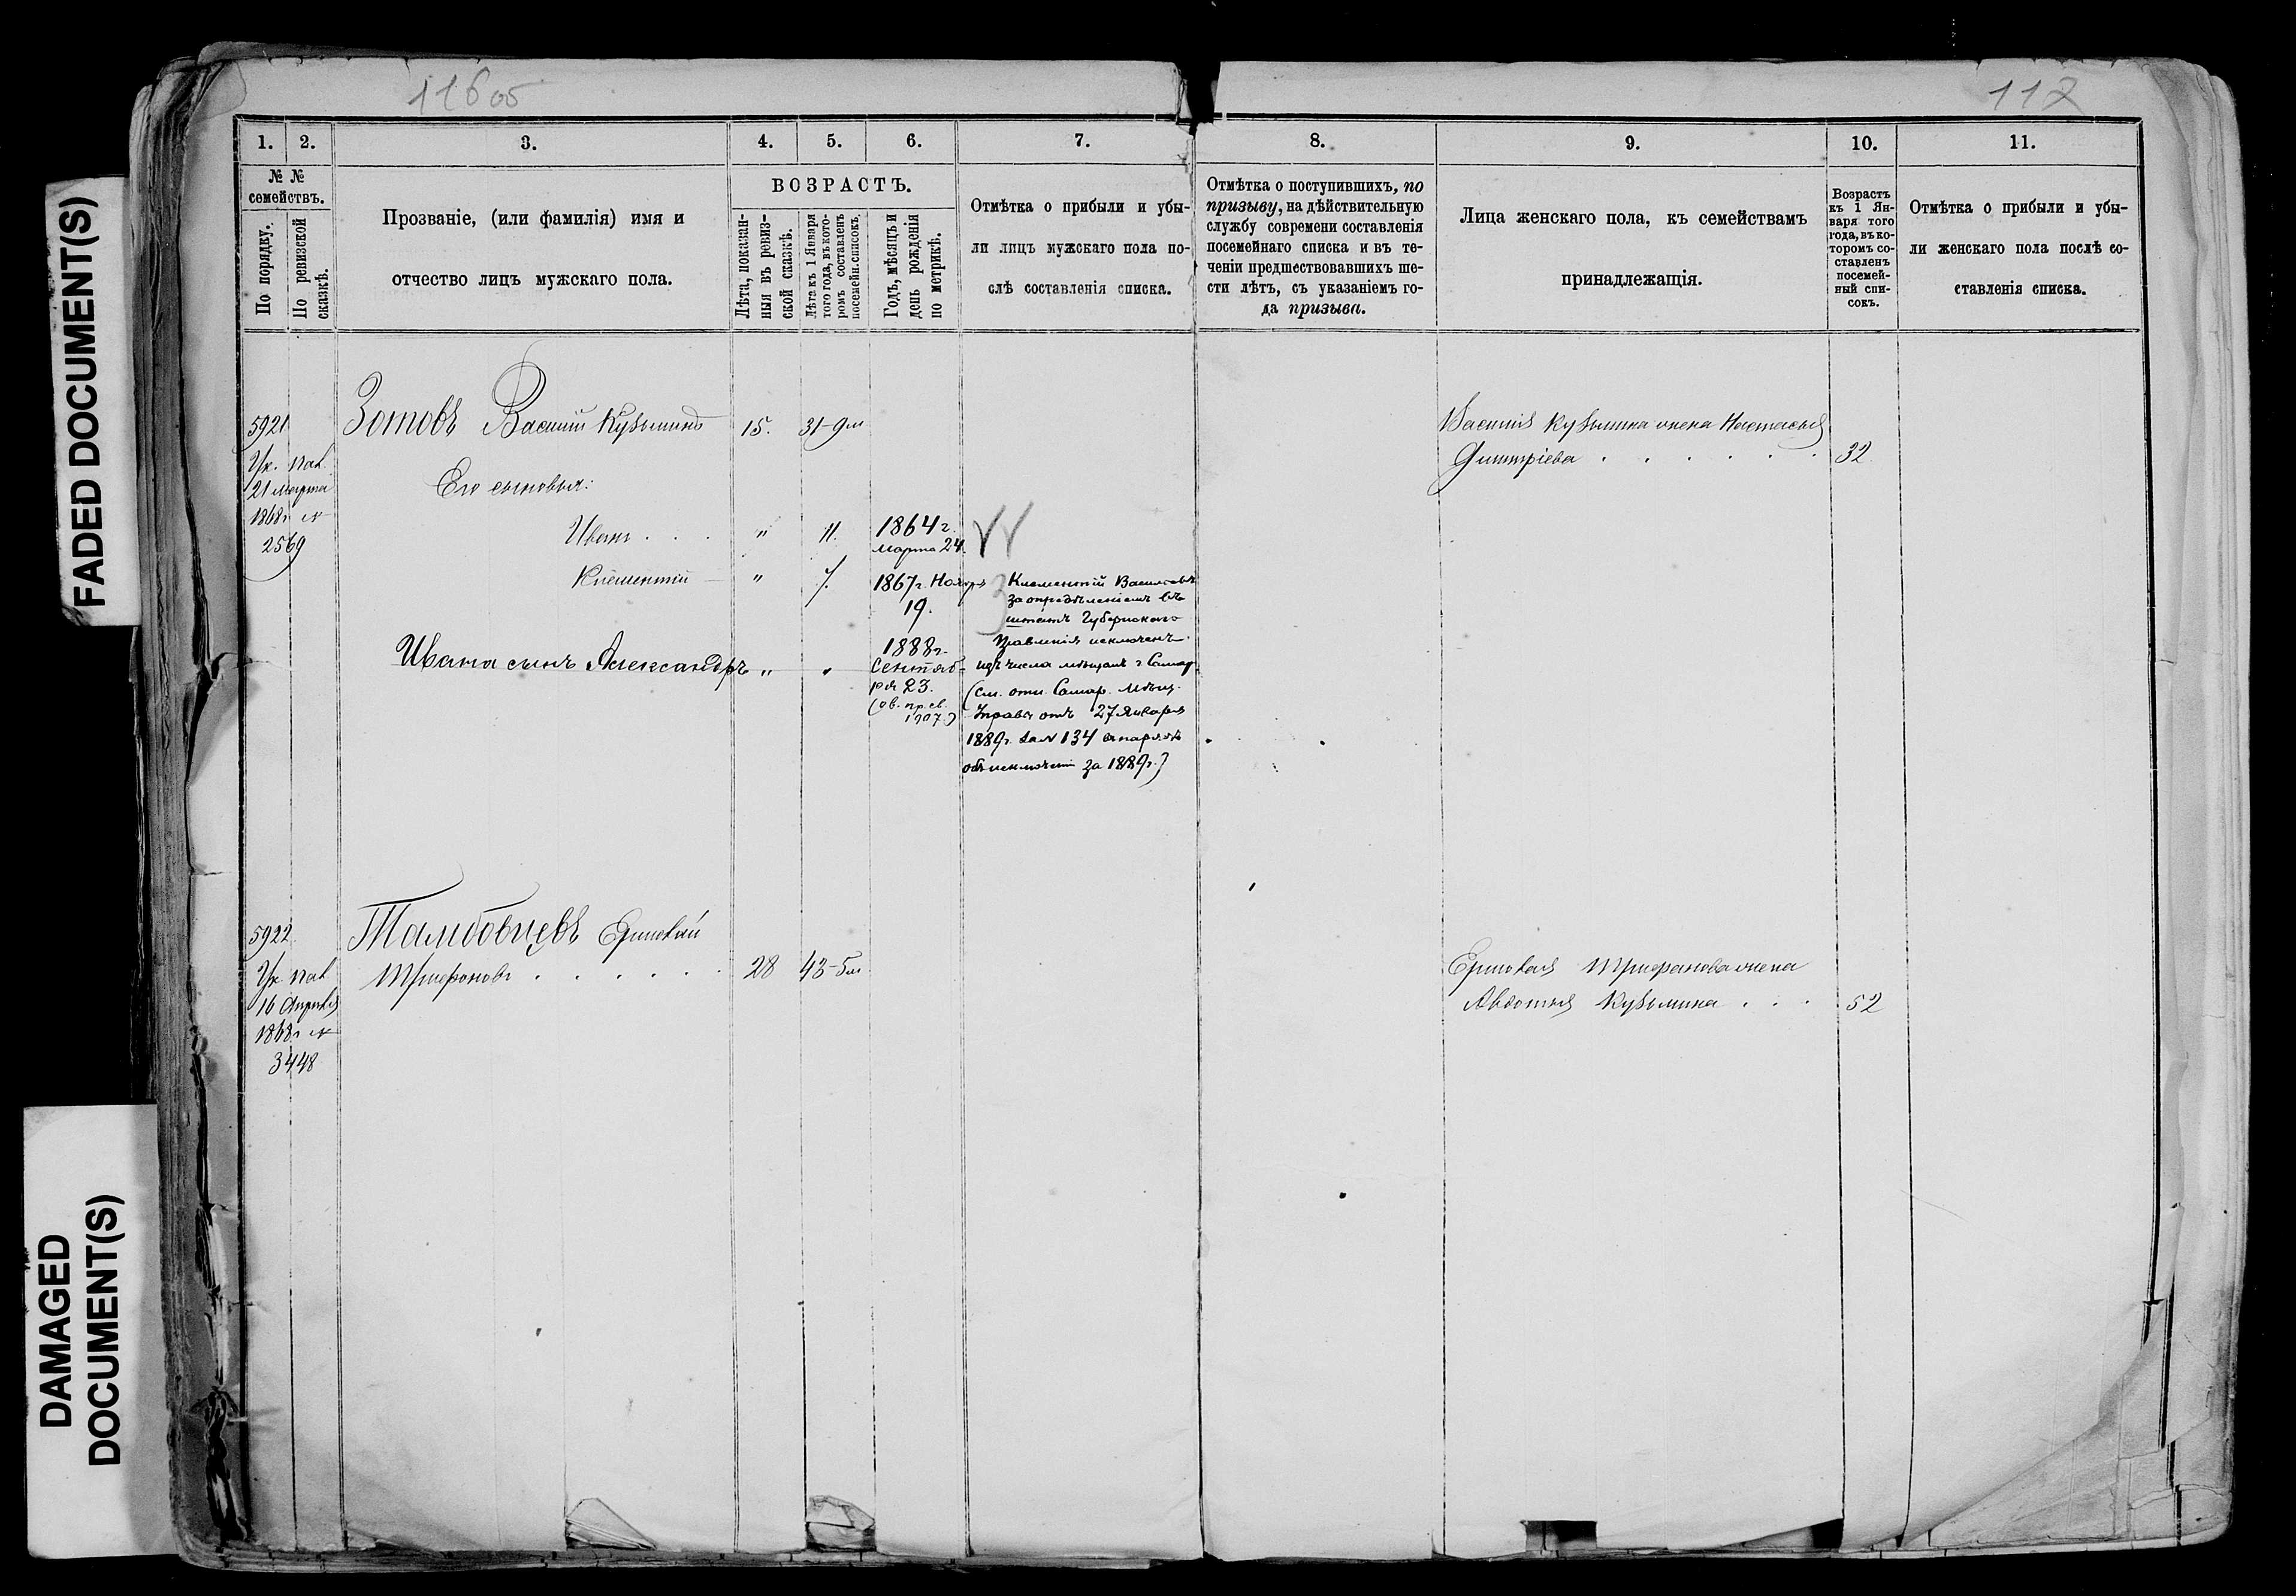 FADED DOCUMENT(S)
DAMAGED
DOCUMENT(S)
116об
112
1. 2. 3. 4. 5. 6. 7. 8. 9. 10. 11.
№ №
семействъ.
По порядку.
По ревизской
сказкѣ.
Прозваніе, (или фамилія) имя и
отчество лицъ мужскаго пола.
ВОЗРАСТЪ.
Лѣта, показан-
ныя въ ревиз-
ской сказкѣ.
Лѣта къ 1 Января
того года, въ кото-
ромъ составленъ
посемейн. списокъ.
Годъ, мѣсяцъ и
день рожденія
по метрикѣ.
Отмѣтка о прибыли и убы-
ли лицъ мужскаго пола по-
слѣ составленія списка.
Отмѣтка о поступившихъ, по
призыву, на дѣйствительную
службу современи составленія
посемейнаго списка и въ те-
ченіи предшествовавшихъ ше-
сти лѣтъ, съ указаніемъ го-
да призыва.
Лица женскаго пола, къ семействамъ
принадлежащія.
Возрастъ
къ 1 Ян-
варя того
года, въ ко-
торомъ со-
ставленъ
посемей-
ный спи-
сокъ.
Отмѣтка о прибыли и убы-
ли женскаго пола послѣ со-
ставленія списка.
5921
Ук. пал.
21 марта
1868 г №
2569
Зотовъ Василій Кузьминъ 15. 31-9м
Его сыновья:
Иванъ . . . " 11. 1864 г.
марта 24.
Клементій " 7. 1867 г. Ноября
19.
Ивана сынъ Александръ " " 1888 г.
Сентяб-
ря 23.
(ов. пр. св.
1907)
Клементій Васильевъ
за опредѣленіемъ въ
штатъ Губернскаго
Правленія исключенъ
изъ числа мѣщанъ г Самар.
(см. отн. Самар. Мѣщ.
Управы отъ 27 Января
1889 г. за № 134 въ нарядѣ
объ исключеніи за 1889 г.)
Василія Кузьмина жена Настасья
Дмитріева . . . . . . 32
5922
Ук. пал
16 Апрѣля
1868 г №
3448
Тамбовцевъ Ермолай
Трифоновъ . . . . . . 28 43-5м
Ермолая Трифонова жена
Авдотья Кузьмина . . . 52